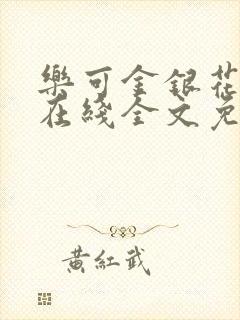 樂可金銀花
在綫全文免
黃紅武